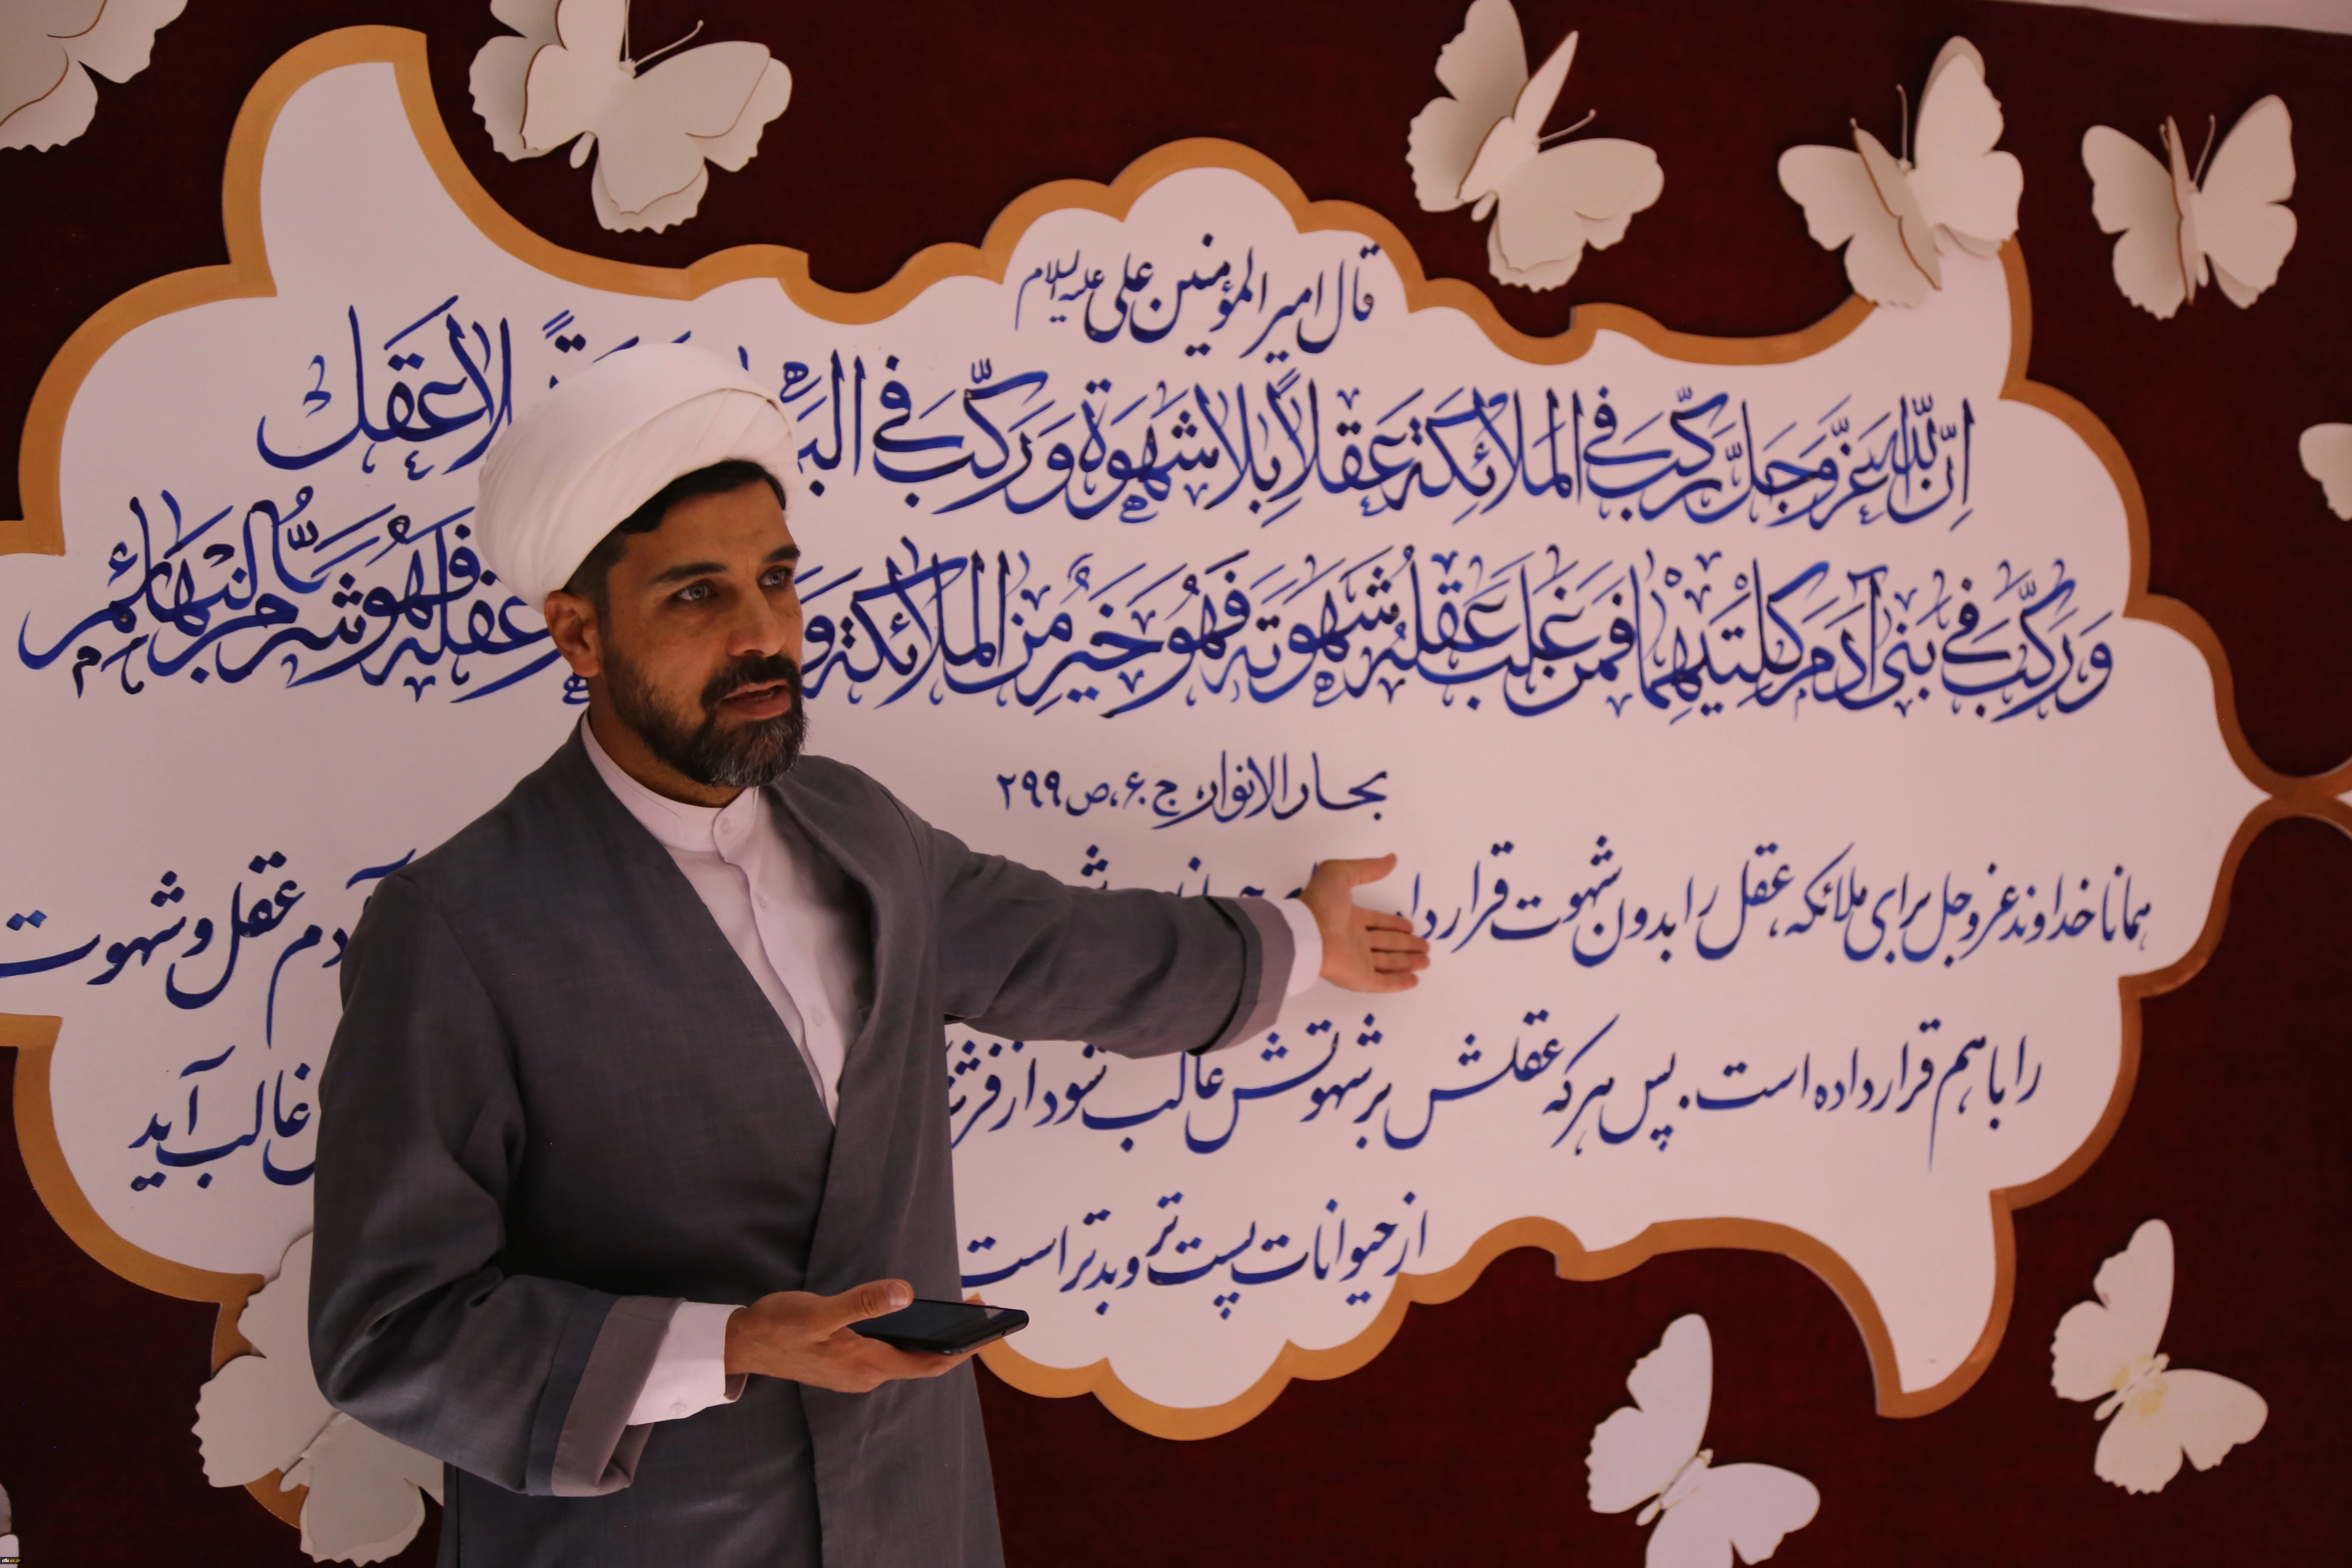 قال امیرالمؤمنین علی علیه السلام
اِنَّ اللهَ عَزَّ وَ جَلَّ رَكَّبَ فِی المَلائِكَةِ عَقلاً بِلا شَهْوَةٍ وَ رَكَّبَ فِی بِلا عَقل
وَ رَكَّبَ فِی بَنی آدَمَ كِلْتَیهِما فَمَن غَلَبَ عَقلُهُ شَهْوَتَه فَهُوَ خَیرٌ مِنَ المَلائِكَة عَقلَه فَهُوَ شَرٌّ مِنَ البَهائِم
بحارالانوار، ج ۶۰، ص ۲۹۹
همانا خداوند عزوجل برای ملائکه، عقل را بدون شهوت قرار داد آدم عقل و شهوت
را با هم قرار داده است. پس هر که عقلش بر شهوتش غالب شود از غالب آید
از حیوانات پست تر و بدتر است